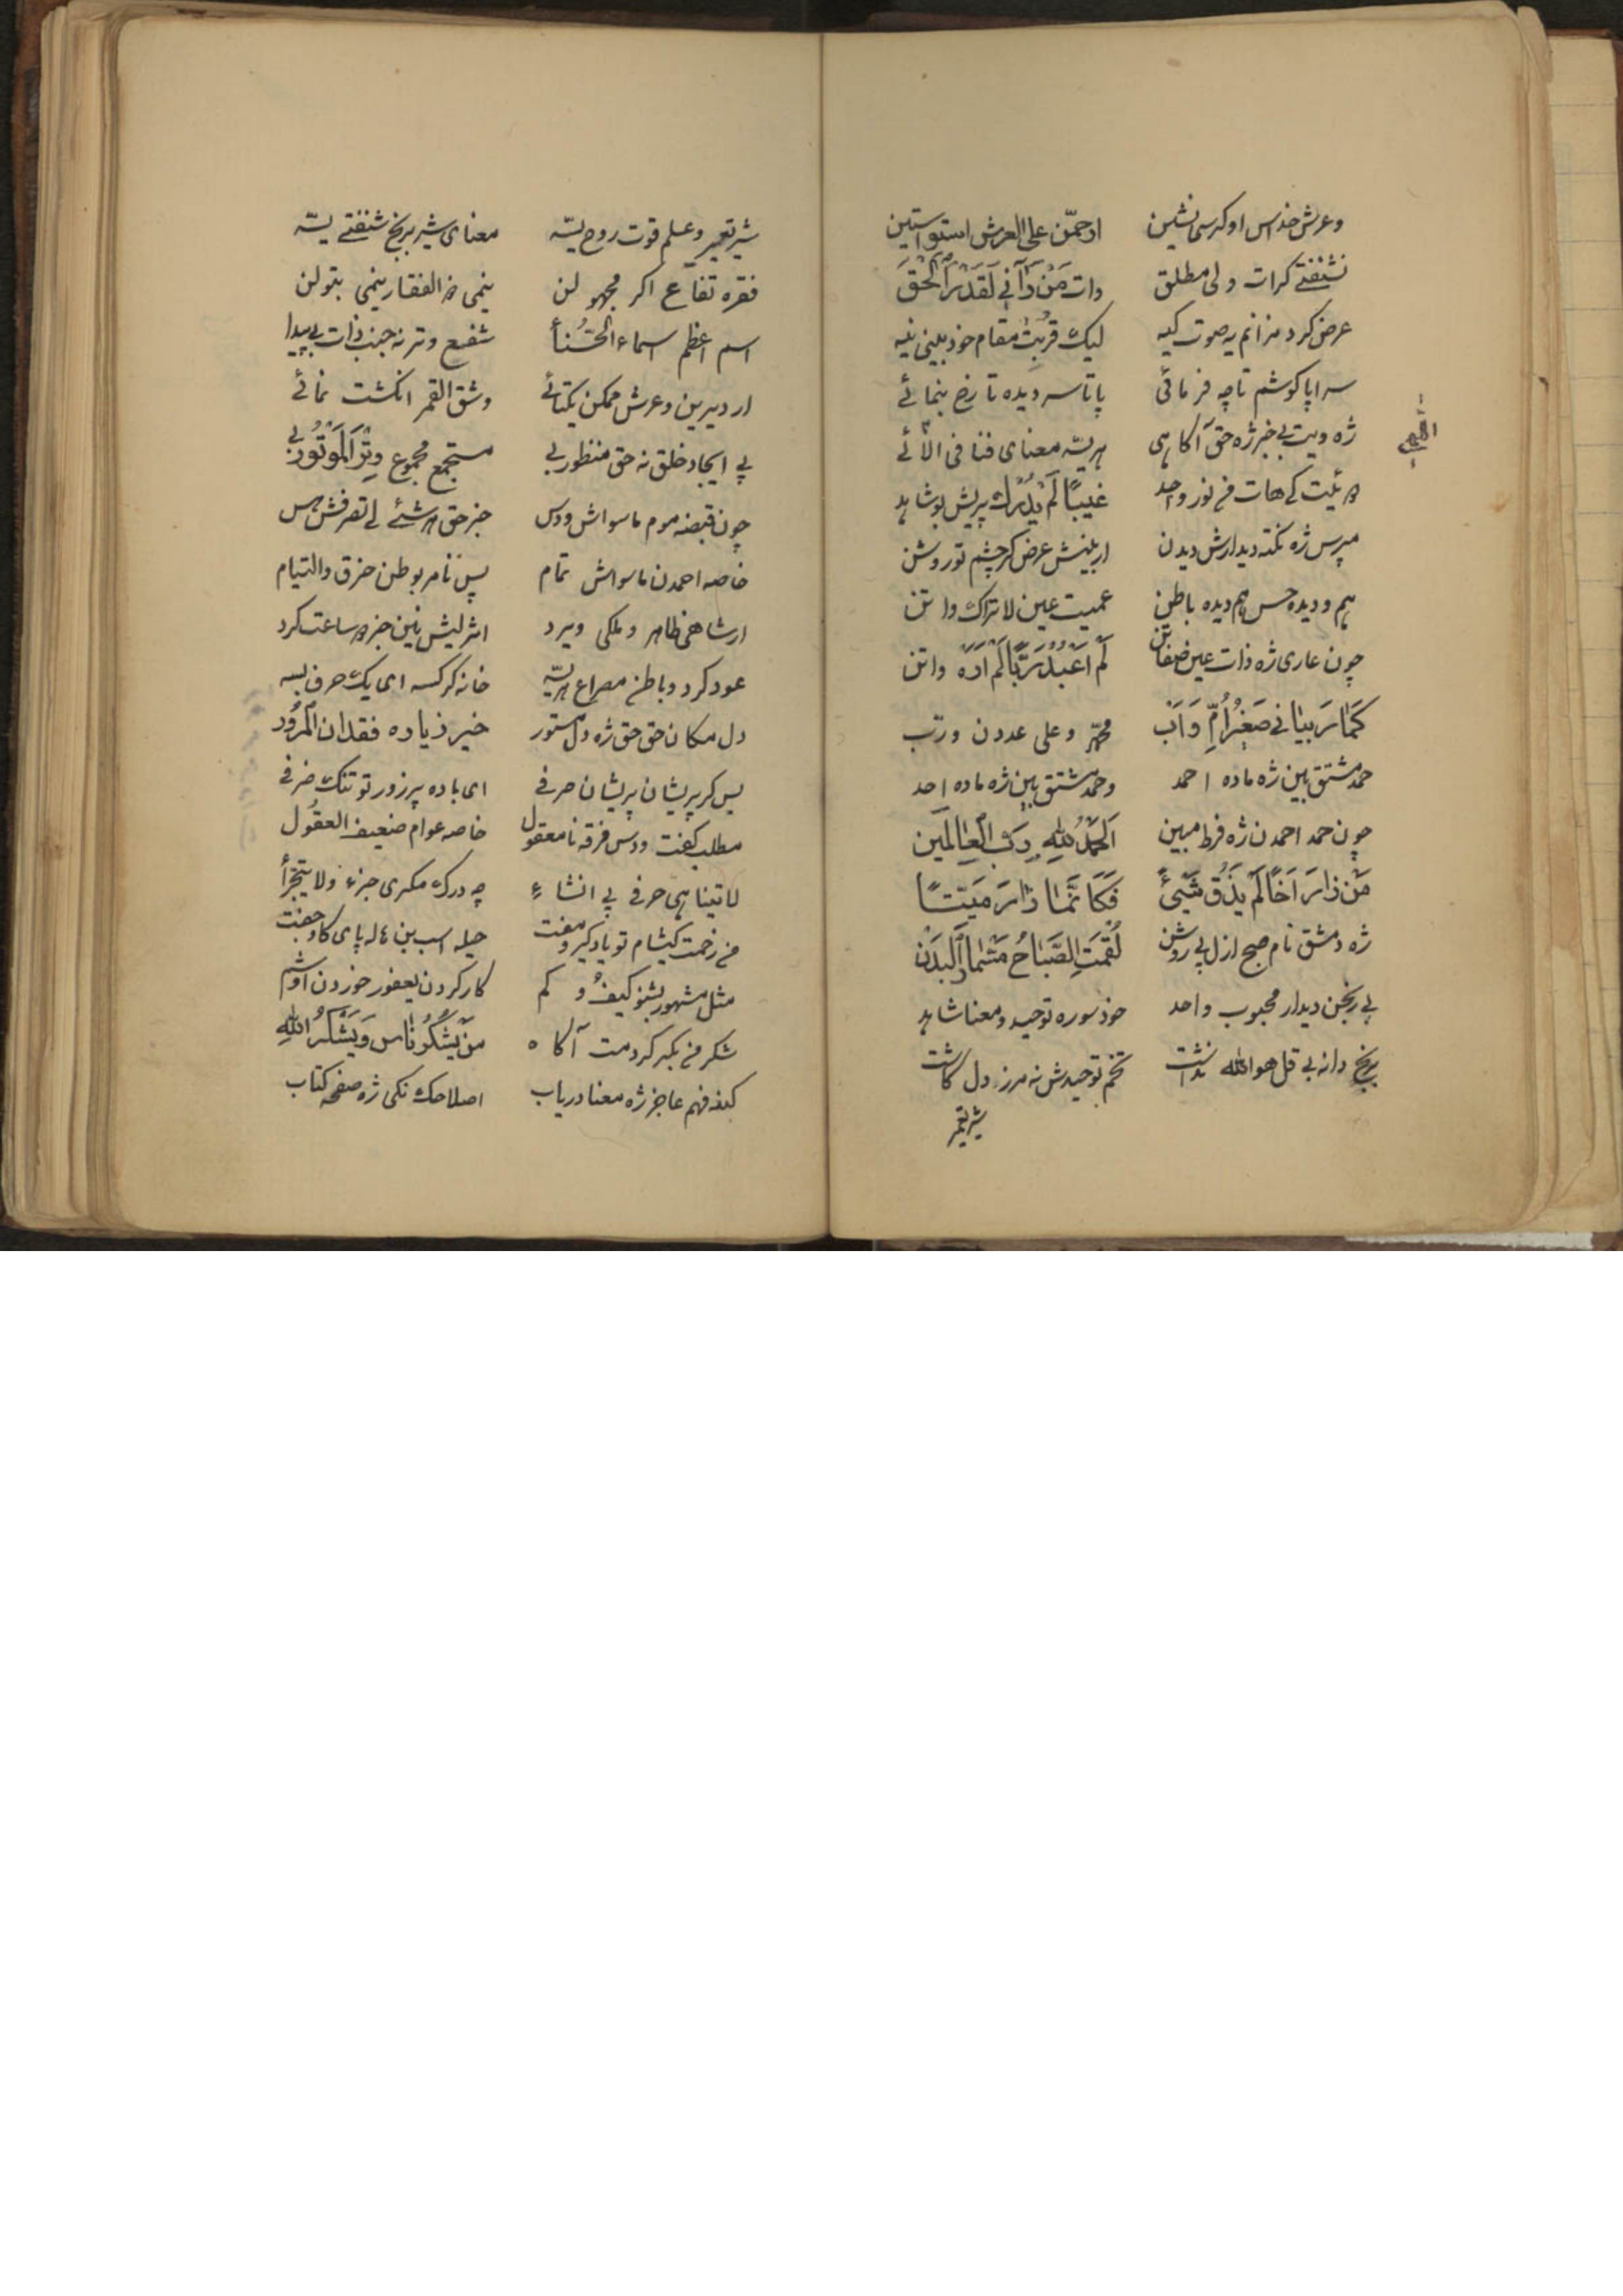 وعرش خداس او کرسی نشین ارحمّن علی العرش استواستین
شنفتے کرات ولی مطلق وات مَن رَآنے لَقَدْ رَآ الْحَق
عرض کرد مزانم یه صوت کیه لیک قربت مقام خود بینی نیه
سراپا کوشم تا چه فرمائی پا تا سر دیده تا رخ بنمائے
ژه ویت بے خبر ژه حق آکاهی هریتہ معنای فنا فی الّائے
اللّهی
رئیت کے هات فے نور واحد غیبًا لَم یُدْرَك پریش بو شاهد
مپرس ژه نکته دیدارش دیدن ار بینش عرض کر چشم تو روشن
هم و دیده حس هم دیده باطن عمیت عین لا تراك واتن
چون عاری ژه ذات عین صفاتن لَم اَعْبُدُ رَبًّا لَم اَرَهُ واتن
کَمٰا رَبیٰانے صَغِرُ اُمِّ وَ اَب محمّد و علی عددن و ربّ
حمد مشتق بین ژه ماده احمد وحمد مشتق بین ژه ماده احد
چون حمد احمدن ژه فرط مبین اَلْحَمْدُ لِلّهِ رَبِّ الْعٰالَمین
مَن زٰارَ اَخًا لَم یَذُق شَیْئً فَکَاَنَّمٰا زٰارَ مَیِتًا
ژه دمشق نام صبح ازل بے روشن لُقْمَتِ الصَّبٰاحُ مَسْمٰار اَلْبَدَن
بے رنجن دیدار محبوب واحد خوذ سوره توحید و معنا شاهد
برنج دانه بے قل هو الله نداشت تخم توحیدش نه مرز دل کاشت
شیر تعمیر
شیر تعمیر و علم قوت روح یتہ معنای شیر برنج شنفتے یتہ
فقره تفاع اکر مجهولن ینمی ذ الفقار ینمی بتولن
اسم اعظم اسماء الْحُسْنأ شفیع و تر نه جنب ذات بے پیدا
ار دیرین و عرش ممکن یکتائے و شق القمر انکشت نمائے
بے ایجاد خلق نه حق منظور بے مستجمع مجموع وِتْرَ الْمَوتُور بے
چون قبضه موم ماسواش ودس جز حق هر شئے لے تصرفش هس
خاصه احمدن ماسواش تمام پس نامربوطن خرق والتیام
ار شاهی ظاهر و ملکی ویرد اثر لیش نین جز و ساعت کرد
عود کرد و باطن مصراع هریتہ خانه کر کسه ای یک حرف بسه
دل مکان حق حق ژه دل مستور خیر زیاده فقدان الْمَرْوُر
پس کر پریشان پریشان حرفے ای باده پر زور تو تنک ظرفے
مطلب کفت ودس فرقه نامعقول خاصه عوام ضعیف العقُول
لا تینا هی حرفے بے انشاءٍ چه درک مکری جزء ولا یتجزأ
مے زحمت کیشام تو یاد کیر و مفت حیله اسب بن عاله پای کاو جفت
مثل مشهور بشنو کیف و کم کار کردن یعفور خوردن اَوشم
شکر مے بکیر کردمت آکاه مَن یَشْکُرْ ناٰس وَ یَشْکُرُ اللّهِ
کند فهم عاجز ژه معنا دریاب اصلاحک نکی ژه صفحه کتاب